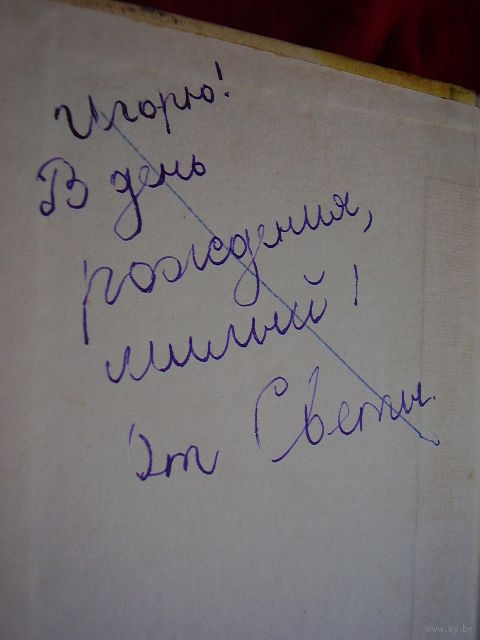 Игорю!
В день
рождения,
милый!
От Светы.
www.ay.by